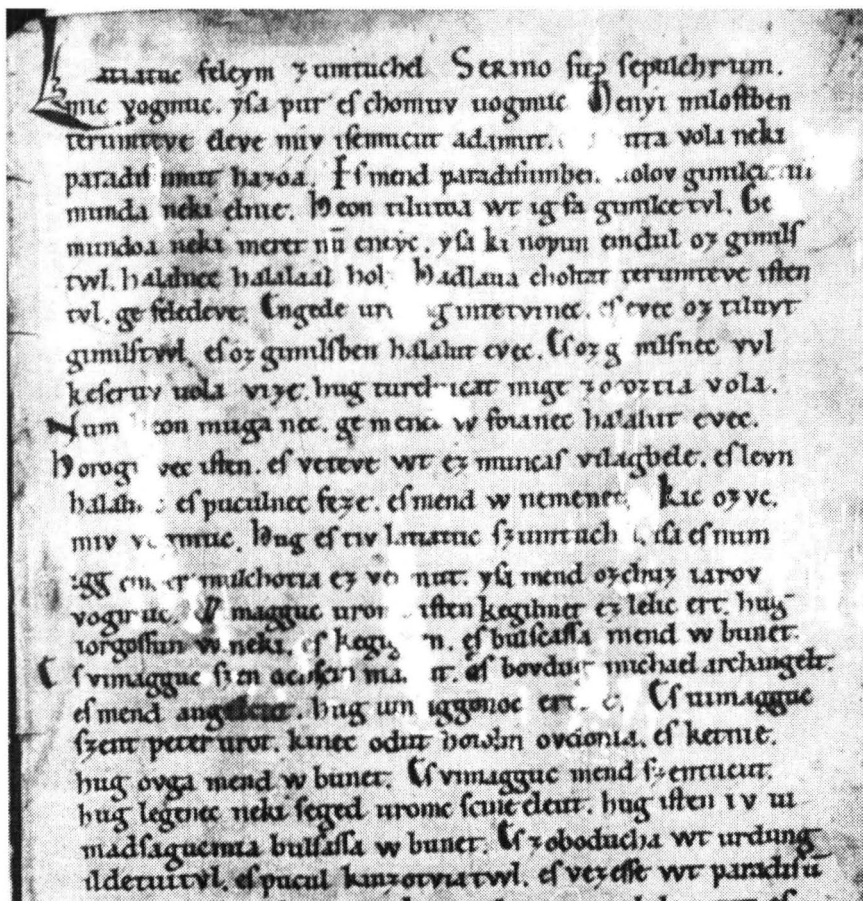 Latiatuc feleym zumtuchel Sermo sup sepulchrum.
mic vogmuc. ysa pur es chomuv uogmuc Menyi milostben
terumteve eleve miv isemucut adamut. vola neki
paradisumut hazoa. Es mend paradisumben. uolov gimilcictul
munda neki elnie. Heon tilutoa wt ig fa gimilce tvl. Ge
mundoa neki meret nū eneyc. ysa ki nopun emdul oz gimils
twl. halalnec halalaal holz Hadlaua choltat terumteve isten
tvl. ge feledeve. Engede intetvinec. es evec oz tiluvt
gimilstwl. es oz gimilsben halalut evec. Es oz gimilsnec vvl
keseruv uola vize. hug turchucat mige zocoztia vola.
Num heon muga nec. ge mend w foianec halalut evec.
Horoguvec isten. es veteve wt ez muncas vilagbele. es levn
halalnec es puculnec feze. es mend w nemenec. Kic ozvc.
miv vogmuc. Hug es tiv latiatuc szumtuchel. isa es num
igg ember mulchotia ez vermut. ysa mend ozchuz iarov
vogmuc. Wimagguc uromc isten kegilmet ez lelic ert. hug
iorgossun w neki. es kegiggen. es bulscassa mend w bunet.
Es vimagguc szen achscin mariat. es bovdug michael archangelt.
es mend angelcut. hug uimaggonoc erette. Es uimagguc
szent peter urot. kinec odut hotolm ovdonia. es ketnie.
hug ovga mend w bunet. Es vimagguc mend szentucut.
hug legenec neki seged uromc scine eleut. hug isten iv ui
madsagucmia bulsassa w bunet. Es zoboducha wt urdung
ildetuitvl. es pucul kinzotviatwl. es vezesse wt paradisū